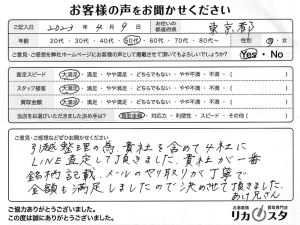 お客様の声をお聞かせください
ご記入日 2023年4月9日 お住いの都道府県 東京都
年齢 20代・30代・40代・50代・60代・70代〜 性別 男・女
ご意見・ご感想を弊社ホームページにお客様の声として掲載させて頂いてもよろしいでしょうか? Yes・No
査定スピード 大満足・満足・やや満足・どちらでもない・やや不満・不満・( )
スタッフ接客 大満足・満足・やや満足・どちらでもない・やや不満・不満・( )
買取金額 大満足・満足・やや満足・どちらでもない・やや不満・不満・( )
当店をお選びいただきました決め手は? 買取金額・対応力・利便性・スピード・その他( )
ご意見・ご感想などぜひお聞かせください
引越整理の為、貴社を含めて4社に
LINE査定して頂きました、貴社が一番
銘柄記載、メールのやり取りが丁寧で
金額も満足しましたので決めさせて頂きました、
ご協力ありがとうございました。
この度は誠にありがとうございました。
お酒高価買取専門店
リカスタ